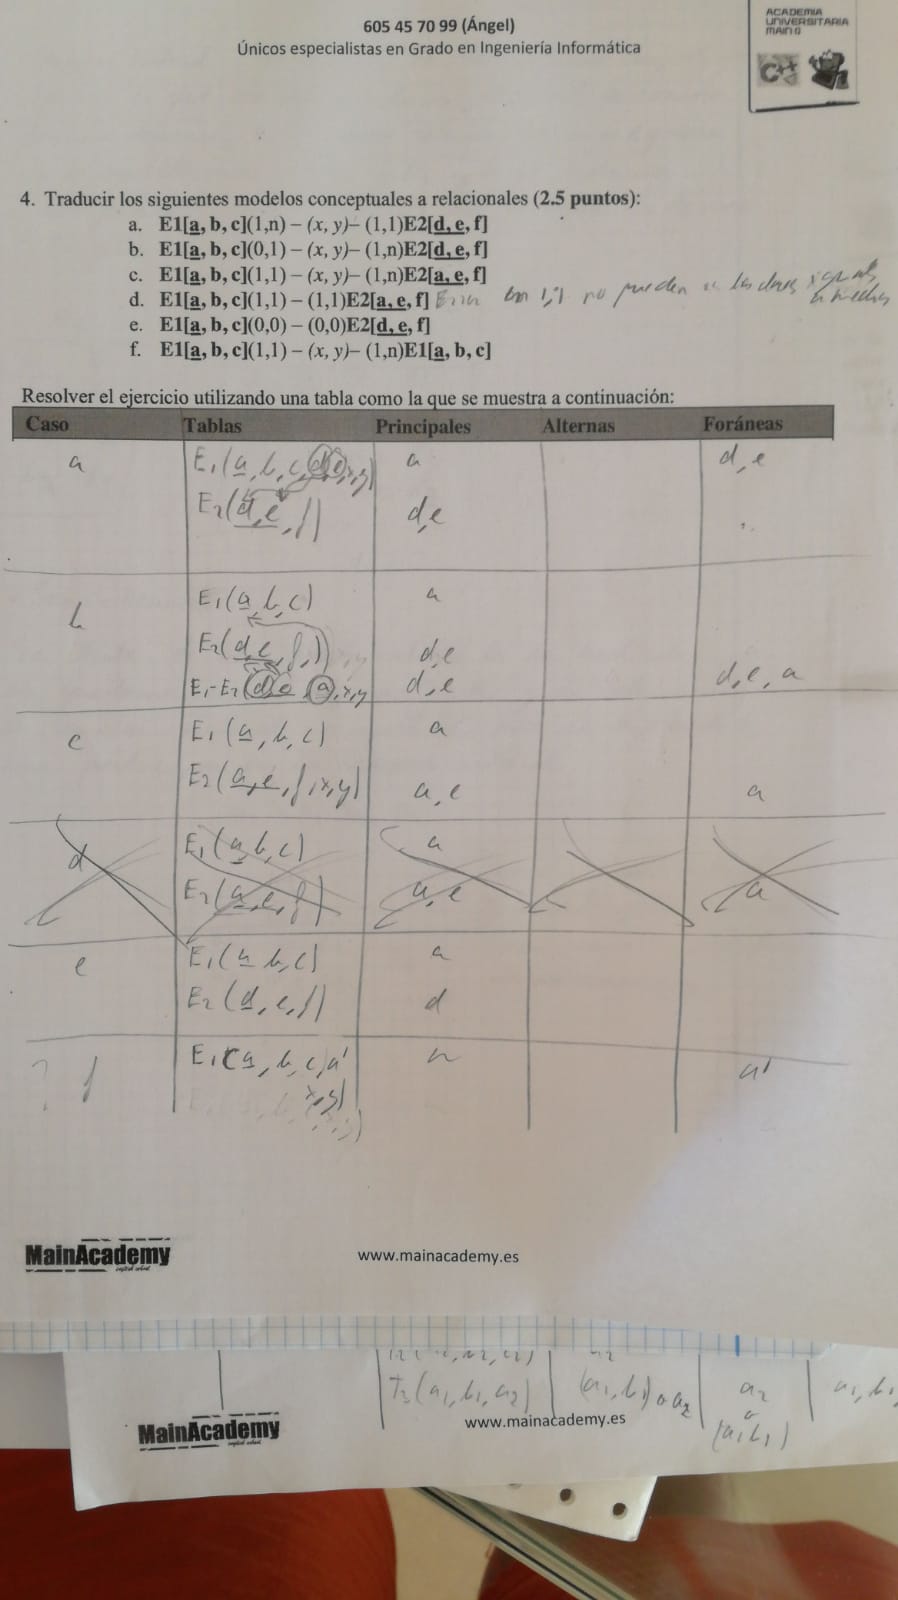 605 45 70 99 (Ángel)
Únicos especialistas en Grado en Ingeniería Informática
ACADEMIA
UNIVERSITARIA
MAIN()
C++
4. Traducir los siguientes modelos conceptuales a relacionales (2.5 puntos):
a. E1[a, b, c](1,n) – (x, y)– (1,1)E2[d, e, f]
b. E1[a, b, c](0,1) – (x, y)– (1,n)E2[d, e, f]
c. E1[a, b, c](1,1) – (x, y)– (1,n)E2[a, e, f]
d. E1[a, b, c](1,1) – (1,1)E2[a, e, f] 1,1 no pueden las claves iguales
e. E1[a, b, c](0,0) – (0,0)E2[d, e, f]
f. E1[a, b, c](1,1) – (x, y)– (1,n)E1[a, b, c]
Resolver el ejercicio utilizando una tabla como la que se muestra a continuación:
Caso Tablas Principales Alternas Foráneas
a E1(a, b, c, d, e, x, y) a d, e
E2(d, e, f) d, e
b E1(a, b, c) a
E2(d, e, f,) d, e
E1-E2(d, e, a, x, y d, e d, e, a
c E1(a, b, c) a
E2(a, e, f, x, y) a, e a
d E1(a, b, c) a
E2(a, e, f) a, e a
e E1(a b, c) a
E2(d, e, f) d
? f E1(a, b, c, a' a a'
x, y)
MainAcademy
www.mainacademy.es
T3(a1, b1, a2) (a1, b1) o a2 a2 a1, b1
o
(a1, b1)
MainAcademy
www.mainacademy.es